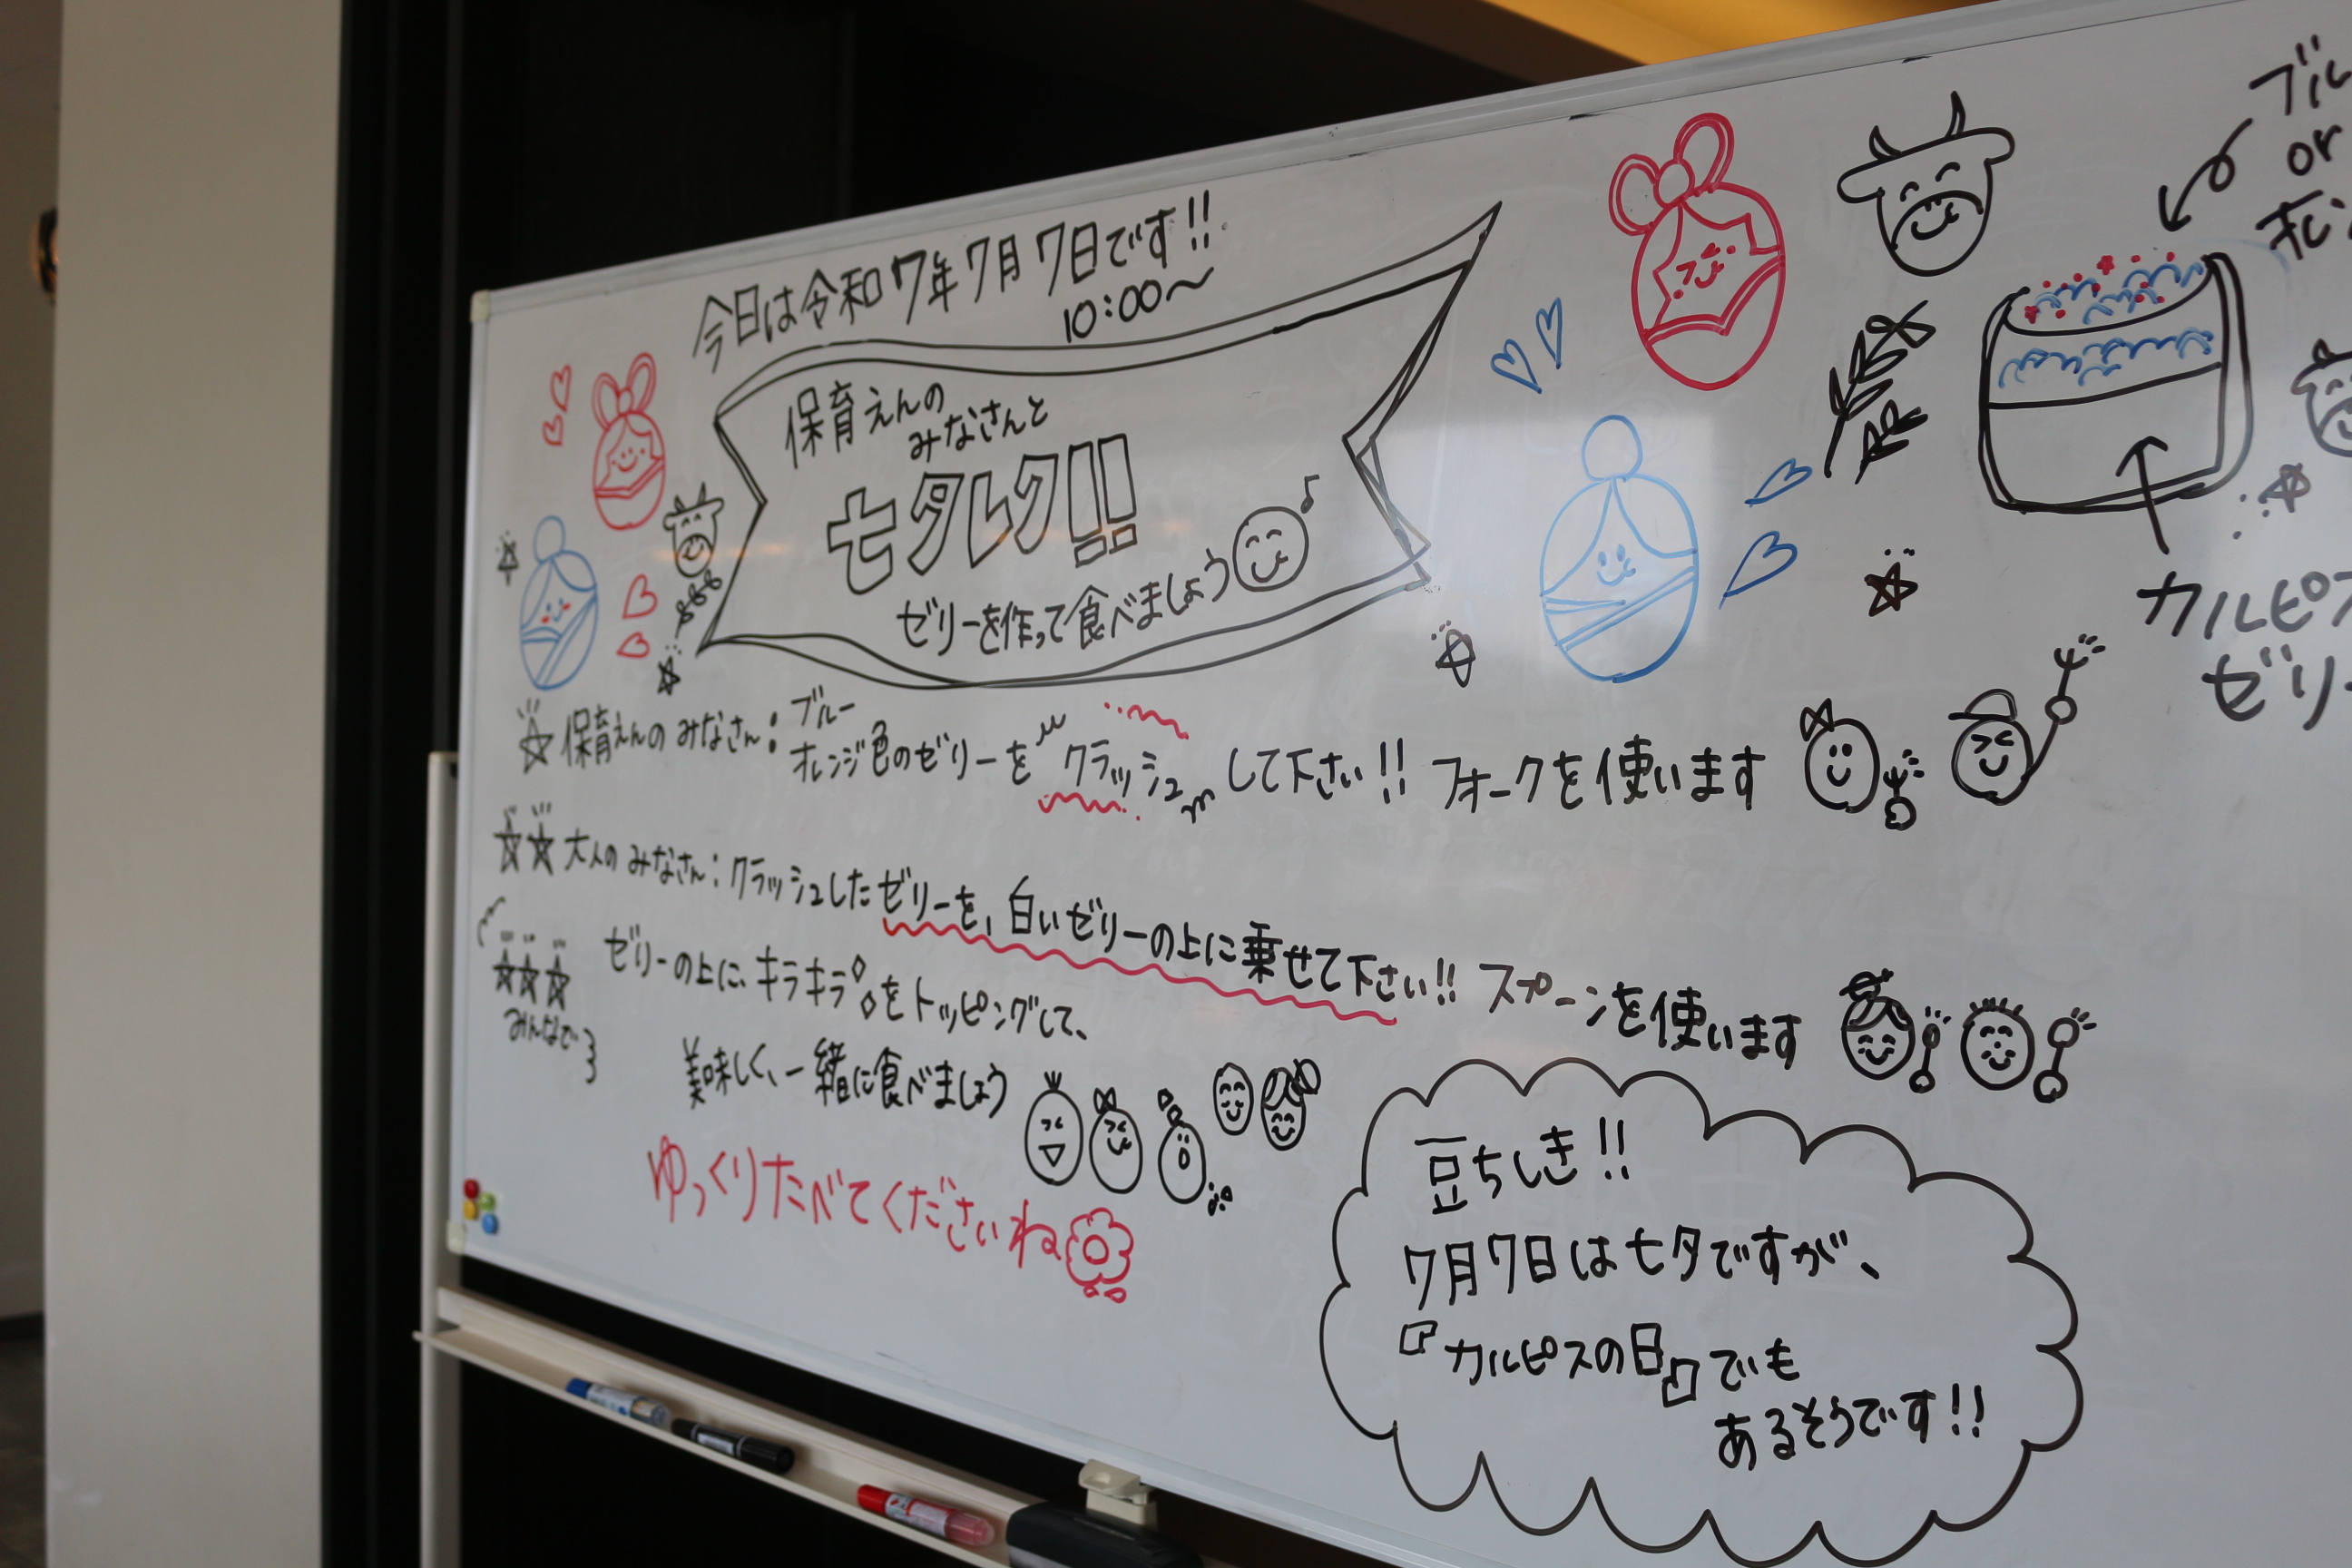 今日は令和7年7月7日です!!
10:00〜
保育えんの
みなさんと
七夕レク!!
ゼリーを作って食べましょう
ブル
or
カルピス
ゼリー
保育えんの みなさん:
ブルー
オレンジ色のゼリーを クラッシュ して下さい!! フォークを使います
大人の みなさん:クラッシュしたゼリーを、白いゼリーの上に乗せて下さい!! スプーンを使います
みんなで
ゼリーの上に、キラキラをトッピングして、
美味しく、一緒に食べましょう
ゆっくりたべてくださいね
豆ちしき!!
7月7日は七夕ですが、
『カルピスの日』でも
あるそうです!!